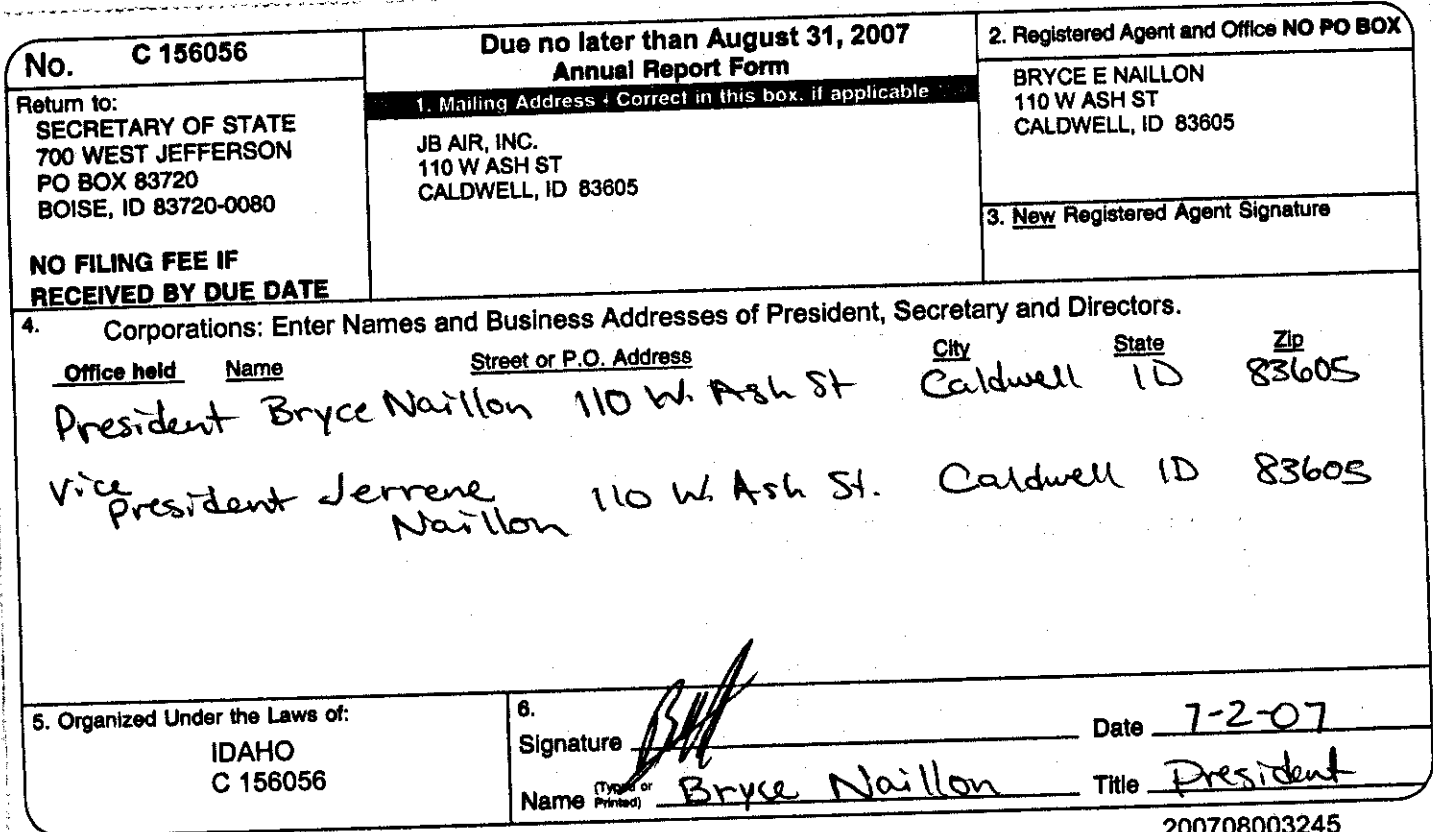 No. C 156056
Return to:
SECRETARY OF STATE
700 WEST JEFFERSON
PO BOX 83720
BOISE, ID 83720-0080
NO FILING FEE IF
RECEIVED BY DUE DATE
Due no later than August 31, 2007
Annual Report Form
1. Mailing Address - Correct in this box, if applicable
JB AIR, INC.
110 W ASH ST
CALDWELL, ID 83605
2. Registered Agent and Office NO PO BOX
BRYCE E NAILLON
110 W ASH ST
CALDWELL, ID 83605
3. New Registered Agent Signature
4. Corporations: Enter Names and Business Addresses of President, Secretary and Directors.
Office held Name Street or P.O. Address City State Zip
President Bryce Naillon 110 W. Ash St Caldwell ID 83605
Vice President Jerrene Naillon 110 W. Ash St. Caldwell ID 83605
5. Organized Under the Laws of:
IDAHO
C 156056
6.
Signature
Date 7-2-07
Name (Typed or Printed) Bryce Naillon
Title President
200708003245